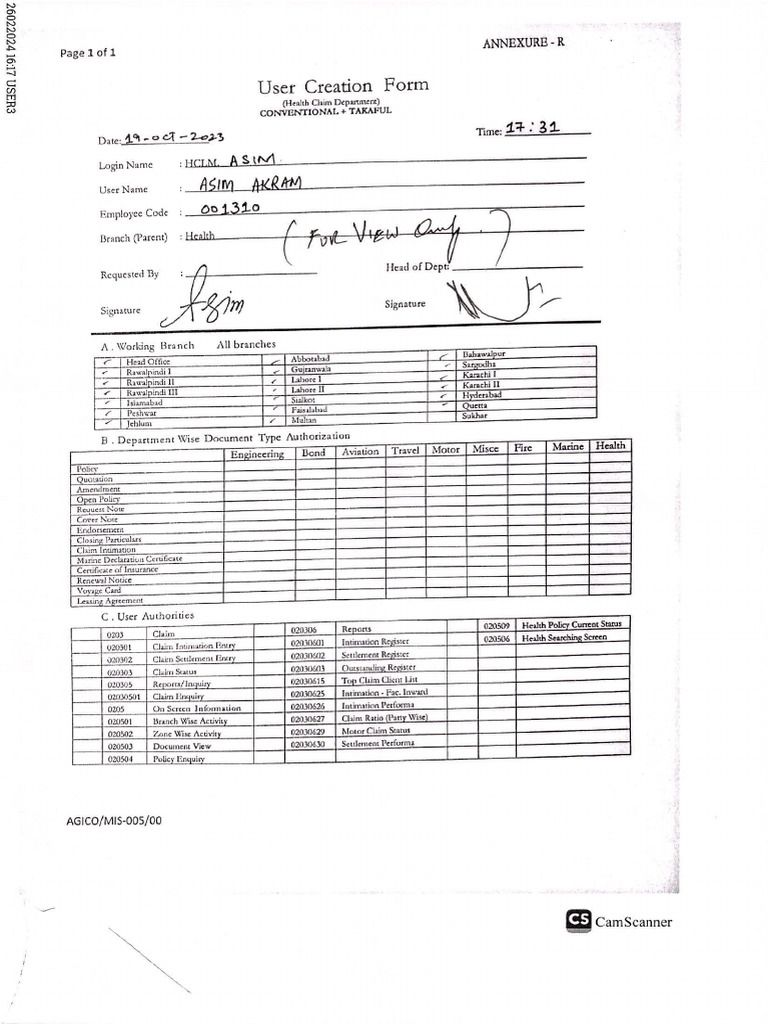 26022024 16:17 USER3
Page 1 of 1
ANNEXURE - R
User Creation Form
(Health Claim Department)
CONVENTIONAL + TAKAFUL
Date: 19-OCT-2023 Time: 17:31
Login Name : HCLM ASIM
User Name : ASIM AKRAM
Employee Code : 001310
Branch (Parent) : Health (FOR VIEW Only.)
Requested By : Head of Dept:
Signature Asim Signature
A. Working Branch All branches
✓ Head Office ✓ Abbotabad ✓ Bahawalpur
✓ Rawalpindi I ✓ Gujranwala ✓ Sargodha
✓ Rawalpindi II ✓ Lahore I ✓ Karachi I
✓ Rawalpindi III ✓ Lahore II ✓ Karachi II
✓ Islamabad ✓ Sialkot ✓ Hyderabad
✓ Peshwar ✓ Faisalabad ✓ Quetta
✓ Jehlum ✓ Multan Sukhar
B. Department Wise Document Type Authorization
Engineering Bond Aviation Travel Motor Misce Fire Marine Health
Policy
Quotation
Amendment
Open Policy
Request Note
Cover Note
Endorsement
Closing Particulars
Claim Intimation
Marine Declaration Certificate
Certificate of Insurance
Renewal Notice
Voyage Card
Leasing Agreement
C. User Authorities
0203 Claim 020306 Reports 020509 Health Policy Current Status
020301 Claim Intimation Entry 02030601 Intimation Register 020506 Health Searching Screen
020302 Claim Settlement Entry 02030602 Settlement Register
020303 Claim Status 02030603 Outstanding Register
020305 Reports/Inquiry 02030615 Top Claim Client List
02030501 Claim Enquiry 02030625 Intimation - Fac. Inward
0205 On Screen Information 02030626 Intimation Performa
020501 Branch Wise Activity 02030627 Claim Ratio (Party Wise)
020502 Zone Wise Activity 02030629 Motor Claim Status
020503 Document View 02030630 Settlement Performa
020504 Policy Enquiry
AGICO/MIS-005/00
CS CamScanner